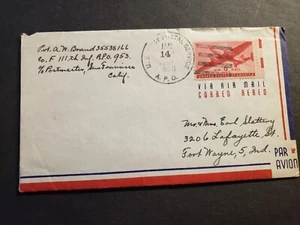 Pvt. A. W. Brand 35538166
Co. F 111th Inf. A.P.O. 953.
c/o Postmaster, San Francisco
Calif.
JAN
14
A.P.O.
UNITED STATES OF AMERICA
VIA AIR MAIL
CORREO AEREO
Mr. & Mrs. Earl Slattery
3206 Lafayette St.
Fort Wayne, 5, Ind.
PAR
AVION